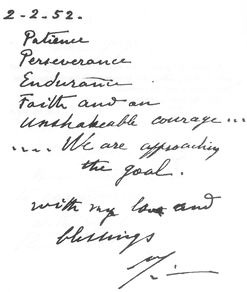 2-2-52.
Patience
Perseverance
Endurance.
Faith and an
unshakeable courage...
..... We are approaching
the goal.
with my love and
blessings